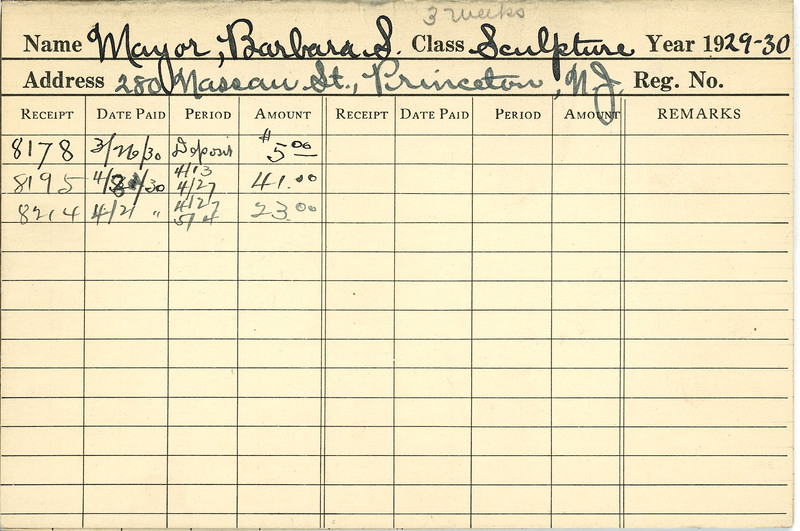 3 weeks
Name Mayor, Barbara S. Class Sculpture Year 1929-30
Address 280 Nassau St., Princeton, N.J. Reg. No.
RECEIPT DATE PAID PERIOD AMOUNT RECEIPT DATE PAID PERIOD AMOUNT REMARKS
8178 3/26/30 Deposit $5.00
8195 4/8/30 4/13 4/27 41.00
8214 4/21 " 4/27 5/4 23.00